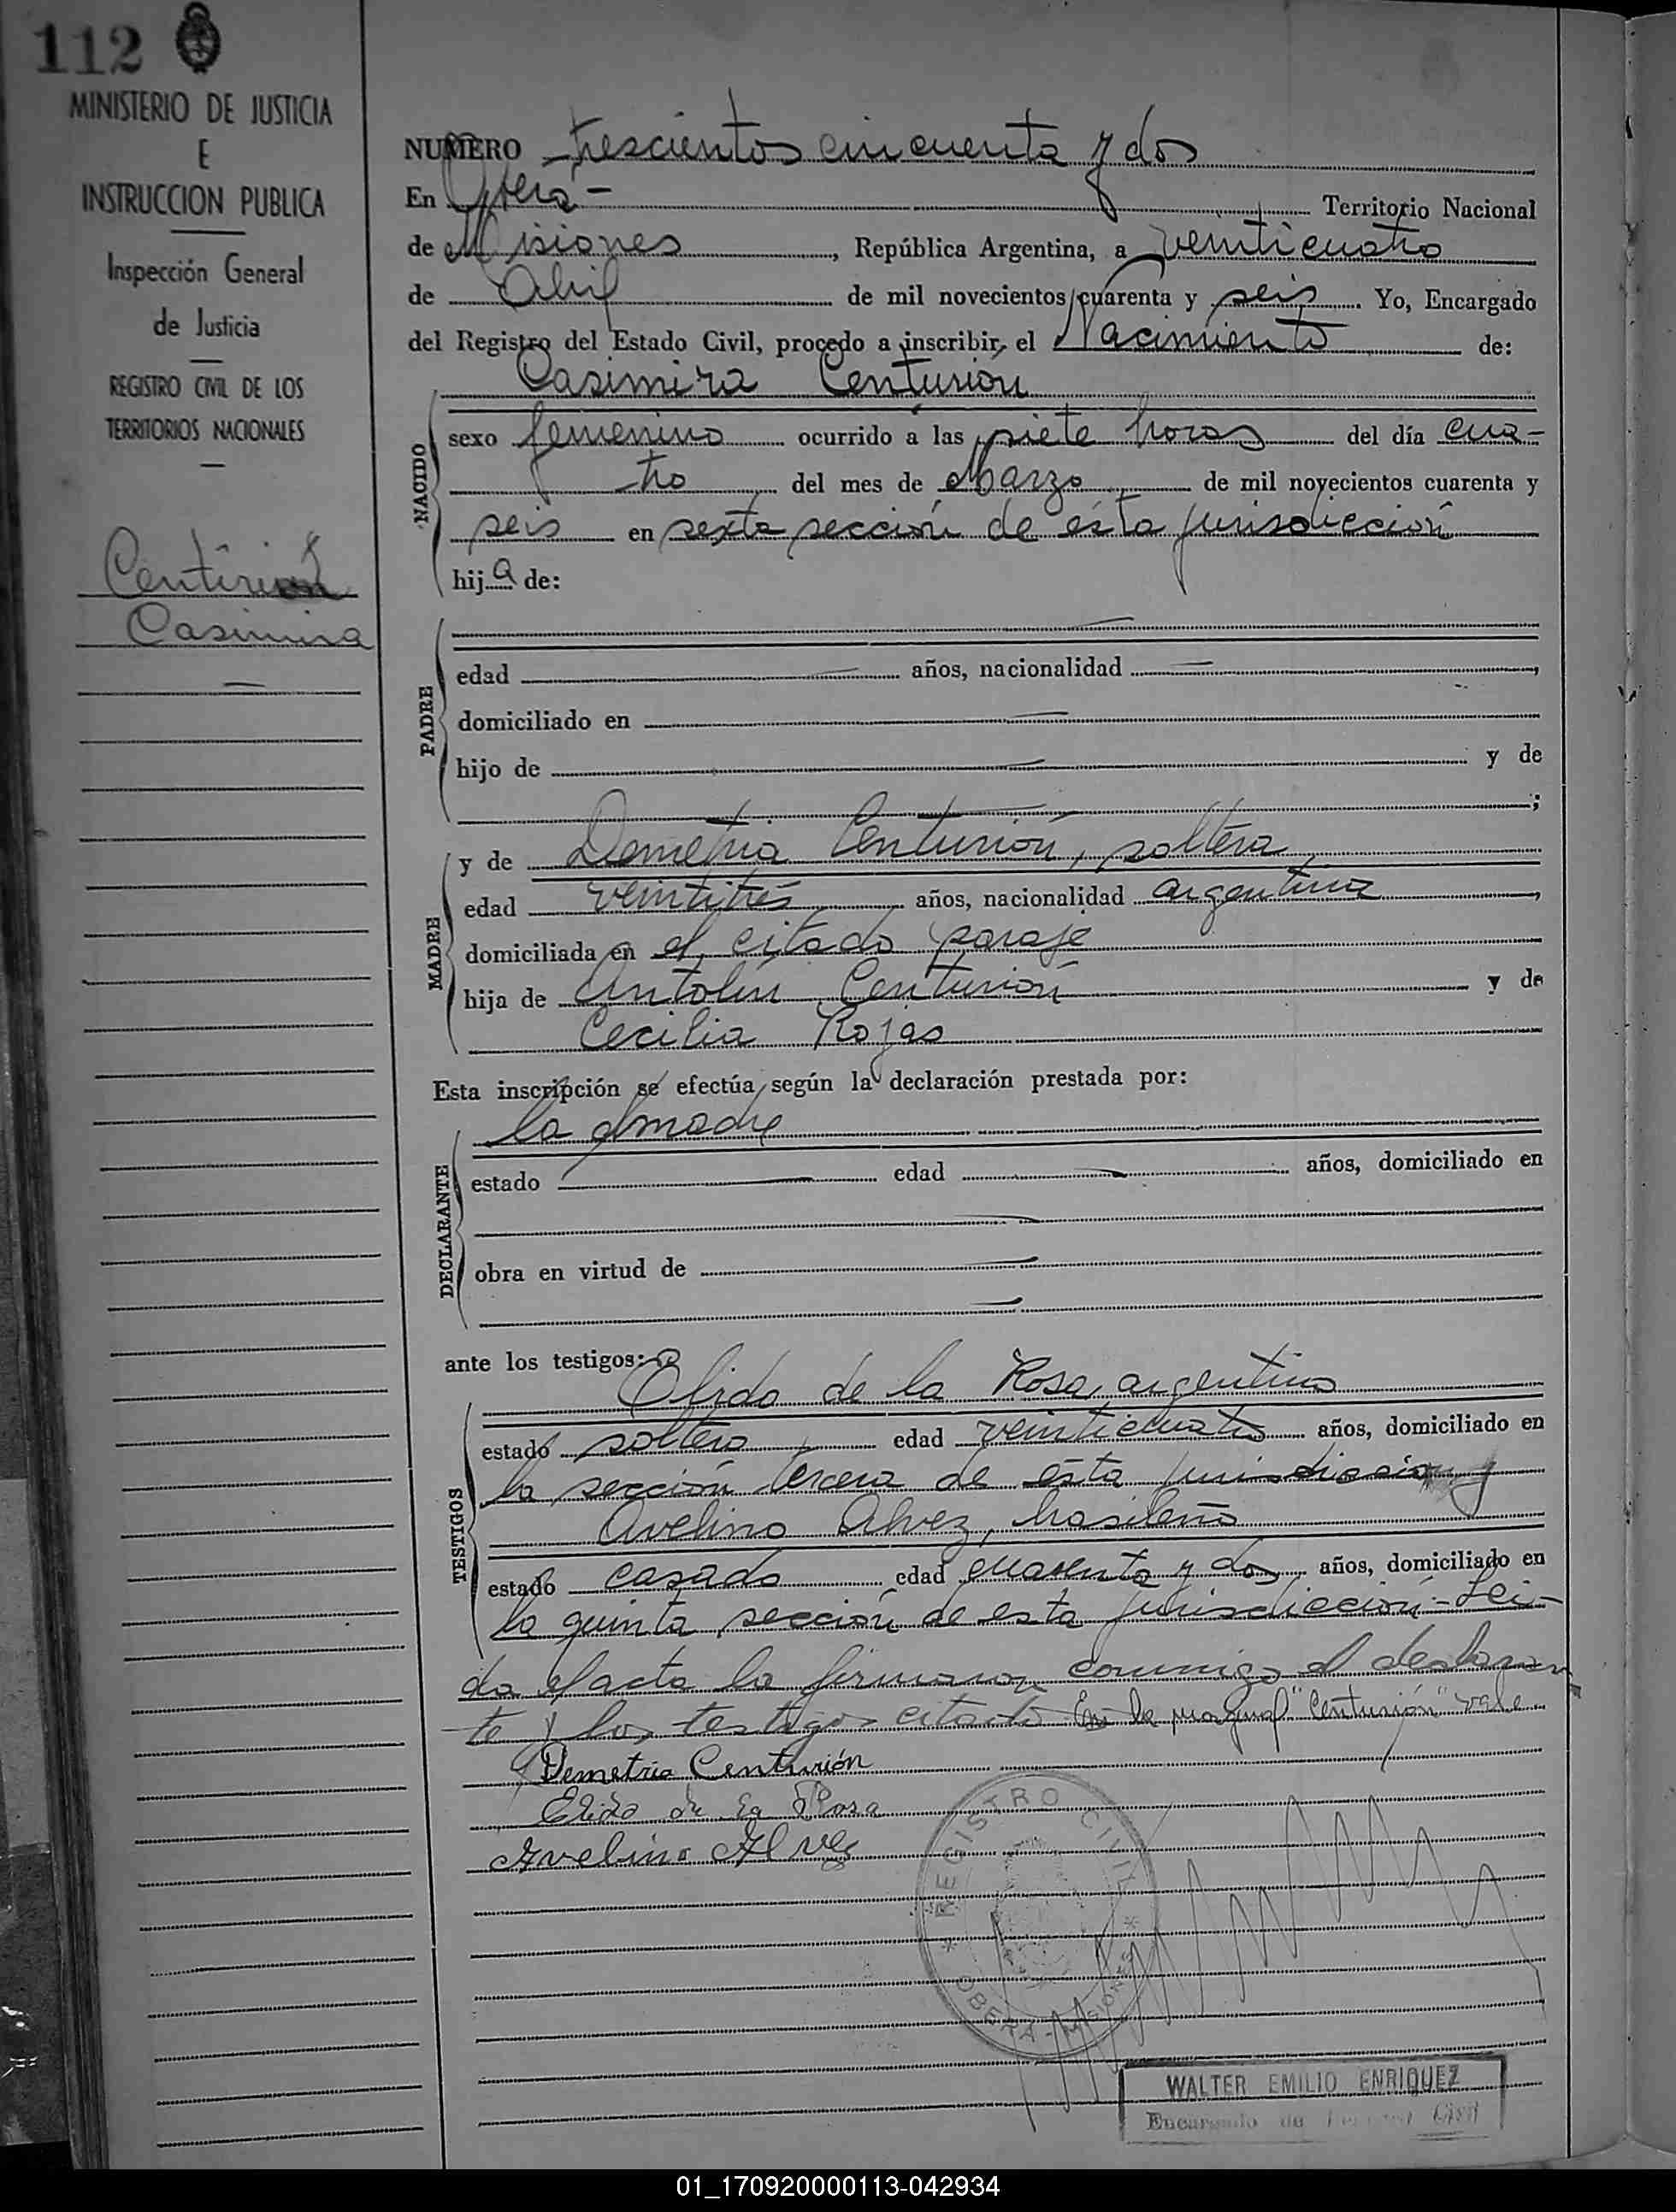 112
MINISTERIO DE JUSTICIA
E
INSTRUCCION PUBLICA
Inspección General
de Justicia
REGISTRO CIVIL DE LOS
TERRITORIOS NACIONALES
Casimira
NUMERO trescientos cincuenta y dos
En Oberá - Territorio Nacional
de Misiones, República Argentina, a veinticuatro
de Abril de mil novecientos cuarenta y seis. Yo, Encargado
del Registro del Estado Civil, procedo a inscribir, el Nacimiento de:
Casimira Centurión
NACIDO
sexo femenino ocurrido a las siete horas del día cua-
tro del mes de Marzo de mil novecientos cuarenta y
seis en sexta sección de ésta jurisdicción
hija de:
PADRE
edad años, nacionalidad
domiciliado en
hijo de y de
;
MADRE
y de Demetria Centurión, soltera,
edad veintitrés años, nacionalidad argentina,
domiciliada en el citado paraje
hija de Antolín Centurión y de
Cecilia Rojas
Esta inscripción se efectúa según la declaración prestada por:
DECLARANTE
la madre
estado edad años, domiciliado en
obra en virtud de
ante los testigos:
TESTIGOS
Elido de la Rosa, argentino
estado soltero edad veinticuatro años, domiciliado en
la sección tercera de ésta jurisdicción y
Avelino Alvez, brasileño
estado casado edad cuarenta y dos años, domiciliado en
la quinta sección de esta jurisdicción - Leí-
da el acta la firmaron conmigo el declaran
te y los testigos citados En la marginal "Centurión" vale
Demetria Centurión
Elido de la Rosa
Avelino Alvez
REGISTRO CIVIL
* OBERA - MISIONES *
WALTER EMILIO ENRIQUEZ
Encargado de Civil
01_170920000113-042934